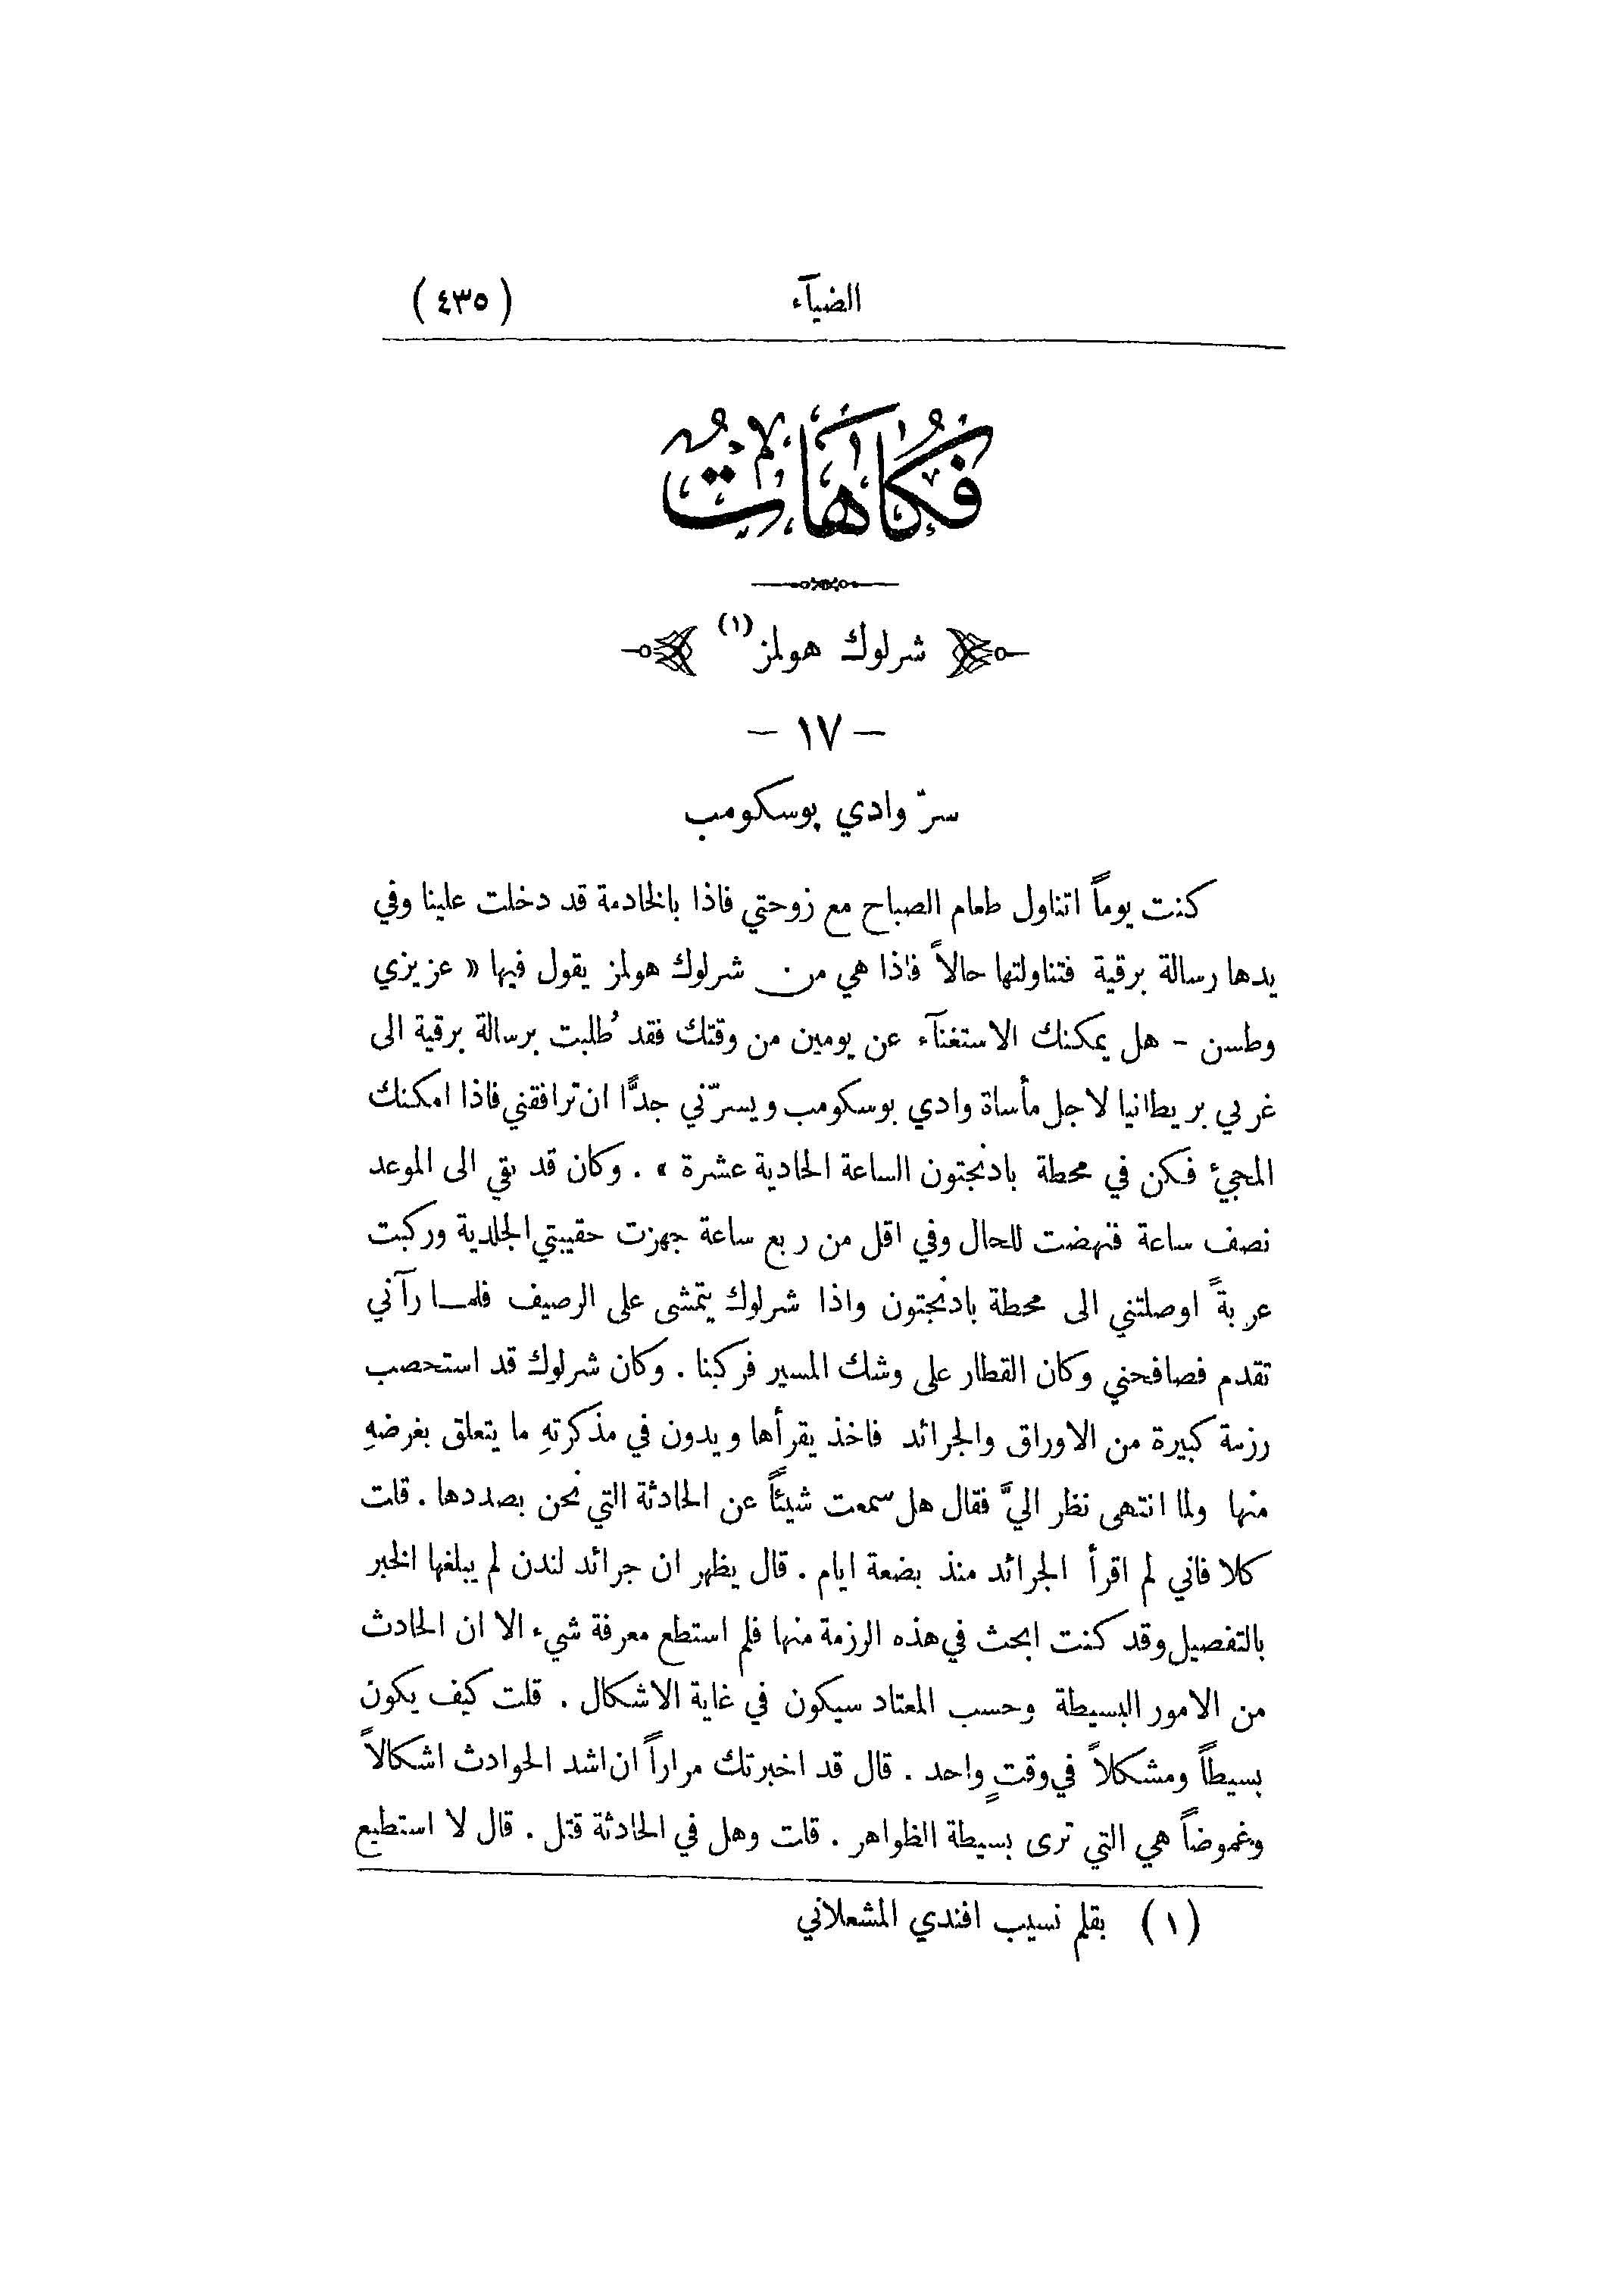 الضيآء
(٤٣٥)
فُكَاهَاتٌ
شرلوك هولمز (١)
– ١٧ –
سرّ وادي بوسكومب
كنت يوماً اتناول طعام الصباح مع زوجتي فاذا بالخادمة قد دخلت علينا وفي
يدها رسالة برقية فتناولتها حالاً فاذا هي من شرلوك هولمز يقول فيها « عزيزي
وطسن – هل يمكنك الاستغنآء عن يومين من وقتك فقد طُلبت برسالة برقية الى
غربي بريطانيا لاجل مأساة وادي بوسكومب ويسرّني جدًّا ان ترافقني فاذا امكنك
المجيئ فكن في محطة بادنجتون الساعة الحادية عشرة » . وكان قد بقي الى الموعد
نصف ساعة فنهضت للحال وفي اقل من ربع ساعة جهزت حقيبتي الجلدية وركبت
عربةً اوصلتني الى محطة بادنجتون واذا شرلوك يتمشى على الرصيف فلما رآني
تقدم فصافحني وكان القطار على وشك المسير فركبنا . وكان شرلوك قد استحصب
رزمة كبيرة من الاوراق والجرائد فاخذ يقرأها ويدون في مذكرتهِ ما يتعلق بغرضهِ
منها ولما انتهى نظر اليَّ فقال هل سمعت شيئاً عن الحادثة التي نحن بصددها . قلت
كلا فاني لم اقرأ الجرائد منذ بضعة ايام . قال يظهر ان جرائد لندن لم يبلغها الخبر
بالتفصيل وقد كنت ابحث في هذه الرزمة منها فلم استطع معرفة شيء الا ان الحادث
من الامور البسيطة وحسب المعتاد سيكون في غاية الاشكال . قلت كيف يكون
بسيطاً ومشكلاً في وقتٍ واحد . قال قد اخبرتك مراراً ان اشد الحوادث اشكالاً
وغموضاً هي التي ترى بسيطة الظواهر . قلت وهل في الحادثة قتل . قال لا استطيع
(١) بقلم نسيب افندي المشعلاني